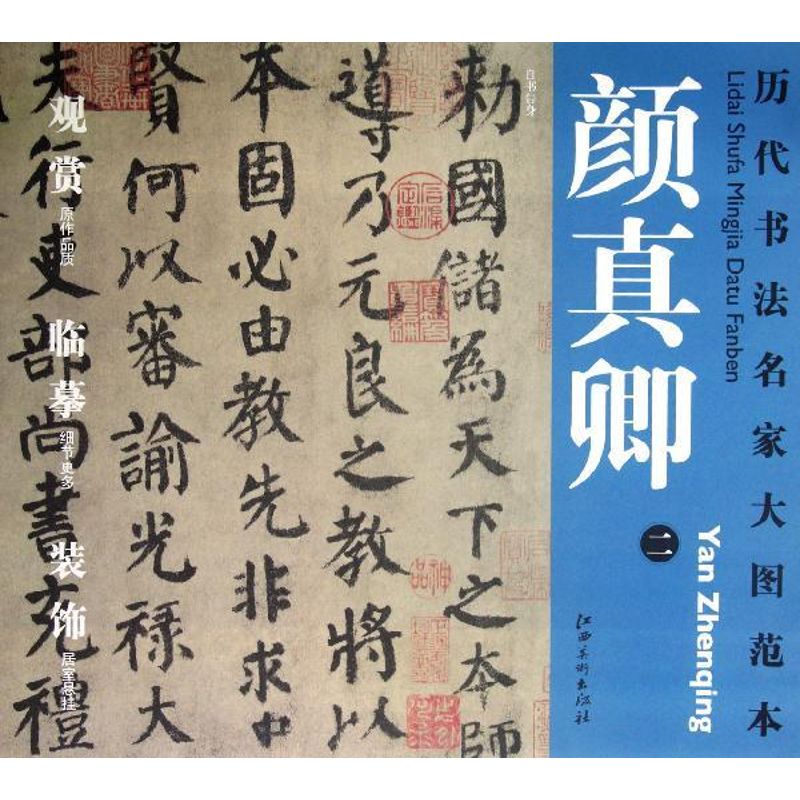 历代书法名家大图范本
Lidai Shufa Mingjia Datu Fanben
颜真卿
二
Yan Zhenqing
江西美术出版社
自书告身
勅國儲為天下之本師
導乃元良之教將以
本固必由教先非求中
賢何以審諭光祿大
夫行吏部尚書充禮
神品
观赏 原作品质
临摹 细节更多
装饰 居室悬挂